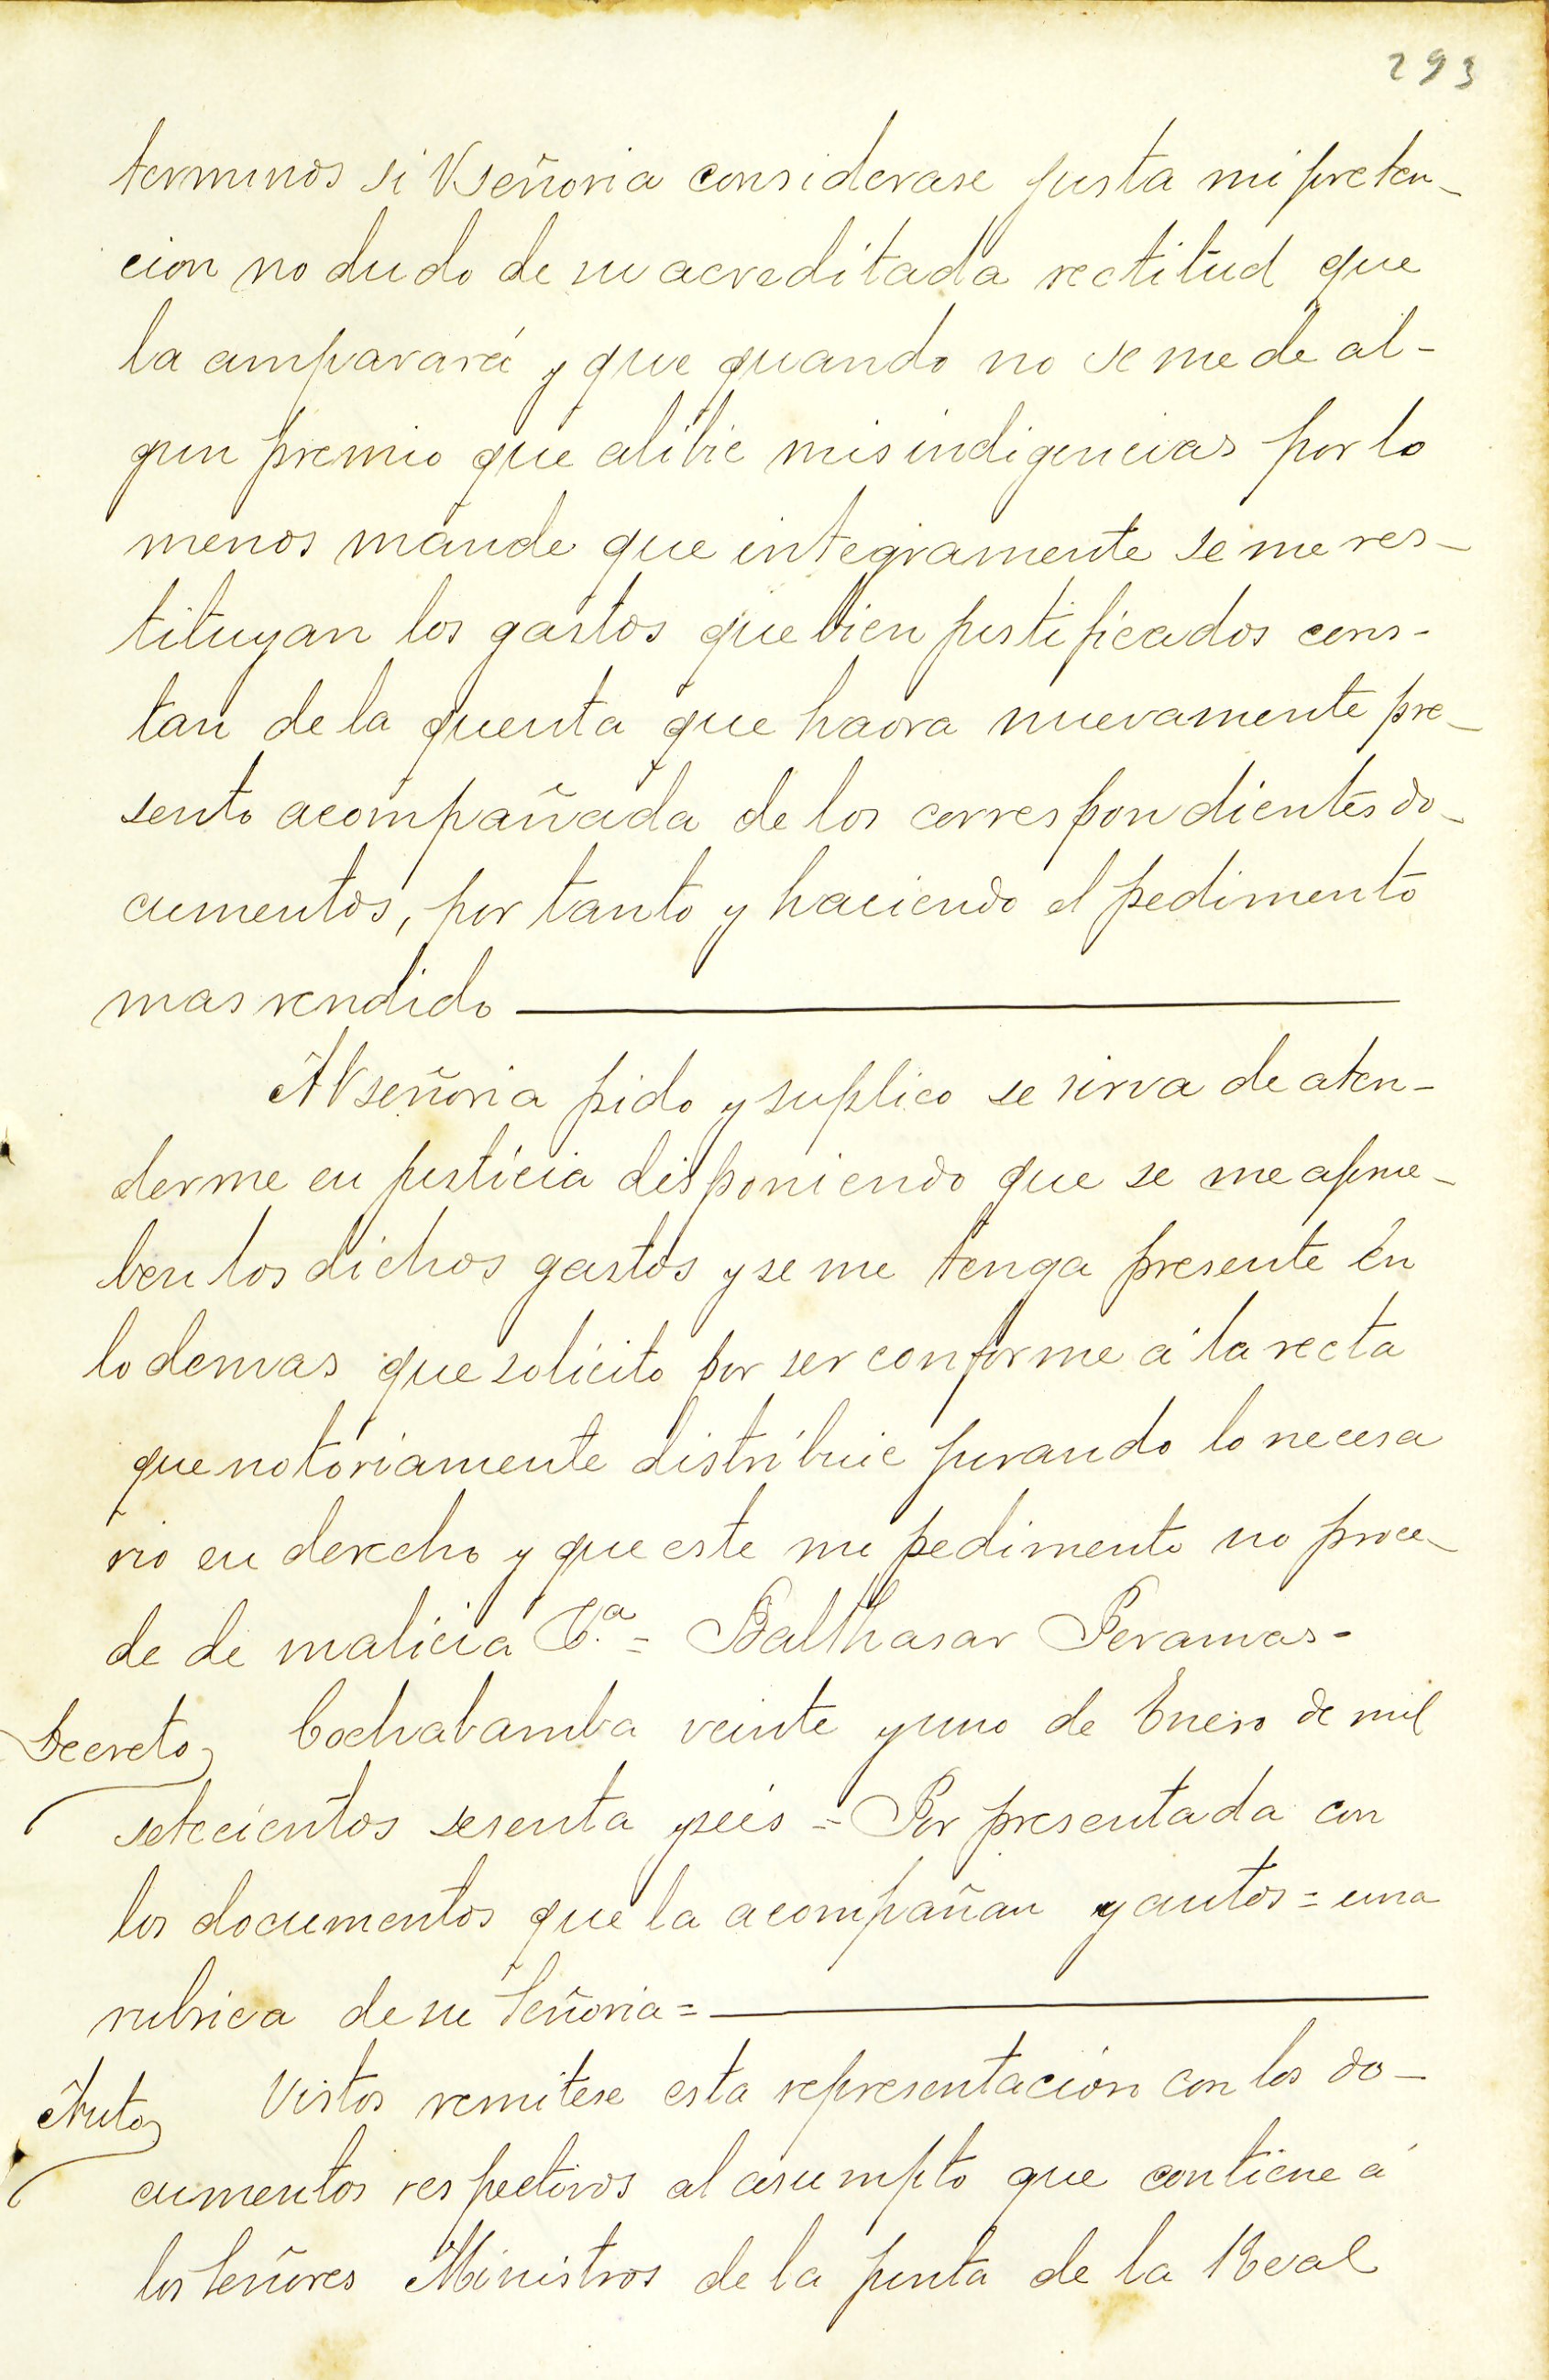 293
terminos si Vseñoria considerase justa mi preten-
cion no dudo de su acreditada rectitud que
la amparará y que quando no se me de al-
gun premio que alibie mis indigencias por lo
menos mande que integramente se me res-
tituyan los gastos que bien justificados cons-
tan de la quenta que haora nuevamente pre-
sento acompañada de los correspondientes do-
cumentos, por tanto y haciendo el pedimento
mas rendido
A Vseñoria pido y suplico se sirva de aten-
derme en justicia disponiendo que se me aprue-
ben los dichos gastos y se me tenga presente en
lo demas que solicito por ser conforme á la recta
que notoriamente distribuie jurando lo necesa
rio en derecho y que este mi pedimento no proce-
de de malicia Vª = Balthasar Peramas -
Decreto Cochabamba veinte y uno de Enero de mil
setecientos sesenta y seis = Por presentada con
los documentos que la acompañan y autos = una
rubrica de su Señoria =
Auto Vistos remitese esta representación con los do-
cumentos respectivos al asumpto que contiene á
los Señores Ministros de la junta de la Real